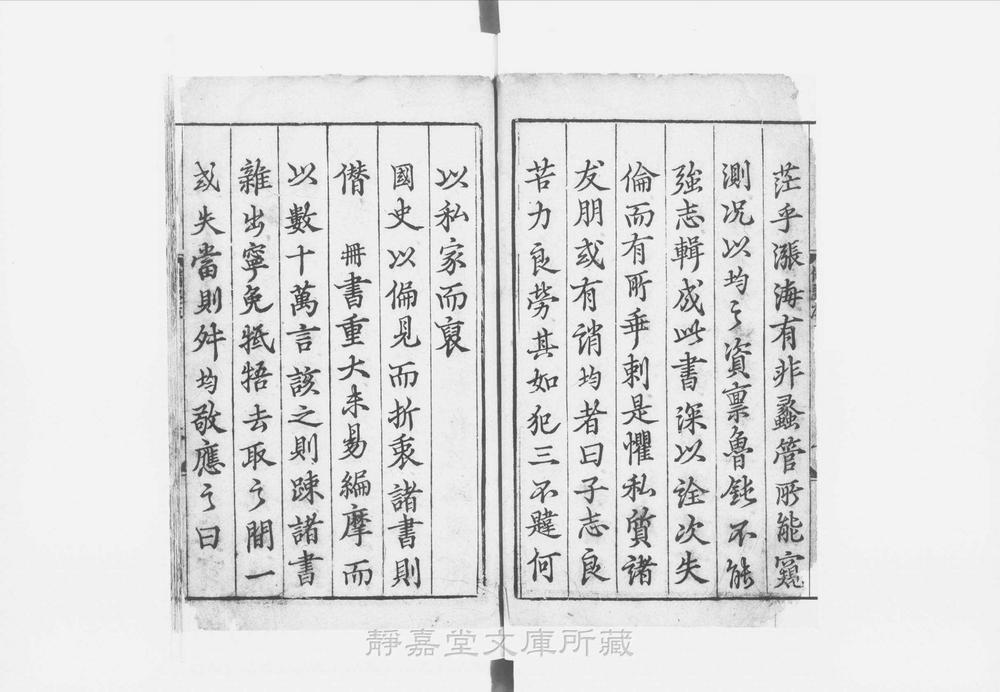 茫乎漲海有非蠡管所能窺
測况以均之資禀魯鈍不能
強志輯成此書深以詮次失
倫而有所乖剌是懼私質諸
友朋或有誚均者曰子志良
苦力良勞其如犯三不韙何
以私家而裒
國史以偏見而折衷諸書則
僭冊書重大未易編摩而
以數十萬言該之則踈諸書
雜出寧免牴牾去取之間一
或失當則舛均敬應之曰
靜嘉堂文庫所藏